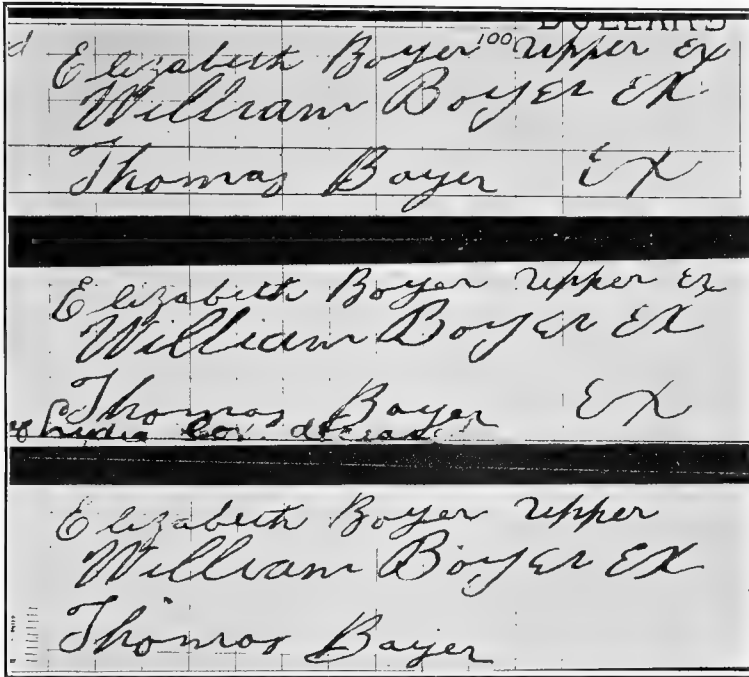 DOLLARS
Elizabeth Boyer 100 Upper Ex
William Boyer EX
Thomas Boyer EX
Elizabeth Boyer Upper Ex
William Boyer EX
Thomas Boyer EX
Elizabeth Boyer Upper
William Boyer EX
Thomas Boyer